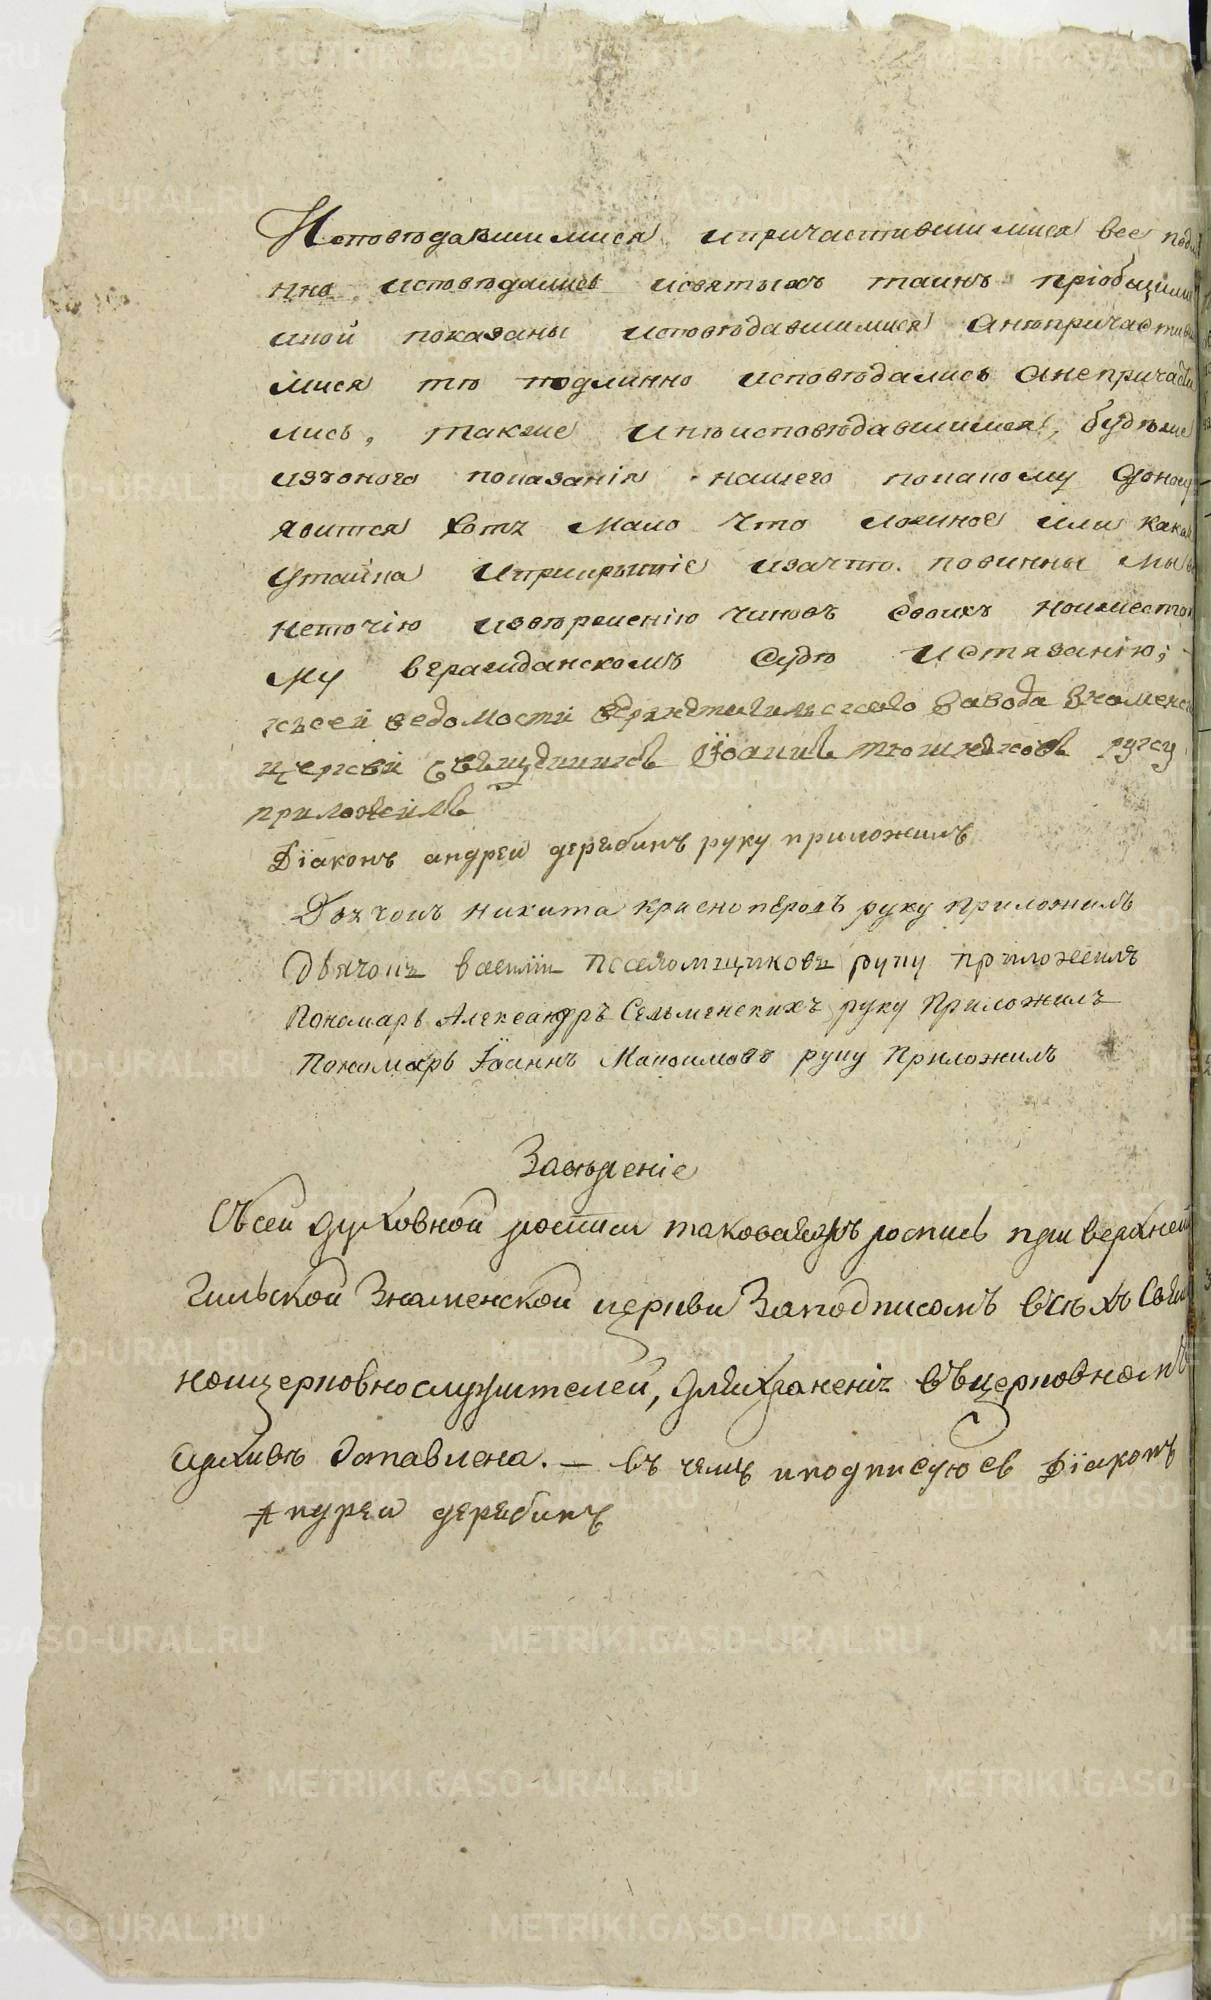 Исповѣдавшимися ипричастившимися все подли
нно исповѣдались исвятыхъ таинъ пріобщили
иной показаны исповѣдавшимися анепричастив
мися тѣ подлинно исповѣдались анепричасти
лись, также инеисповѣдавшимися, будѣже
изъ оного показанія нашего покакому доносу
явится хотя мало что ложное или какая
утайка иприкрытіе изачто повинны мы
неточію изверженію чиновъ своихъ ноижесто
му вгражданскомъ судѣ истязанію;
къ сей ведомости верхнетагильскаго завода Знаменск
церкви священникъ Іоаннъ тюшняковъ руку
приложилъ
Діаконъ андреи дерябинъ руку приложилъ
Дьячокъ никита красноперовъ руку приложилъ
Дьячокъ василіи Посяломщиковъ руку приложилъ
Пономарь Александръ Сельменскихъ руку Приложилъ
Пономарь Іоаннъ Максимовъ руку Приложилъ
Завѣреніе
Съ сей духовной росписи таковаяжъ роспись при верхнета
гильской Знаменской церкви Заподписомъ всѣхъ Свящ
ноицерковнослужителей, для храненія въ церковномъ
архивѣ Оставлена. — въ чемъ иподписуюсь Діаконъ
Андреи дерябинъ
METRIKI.GASO-URAL.RU